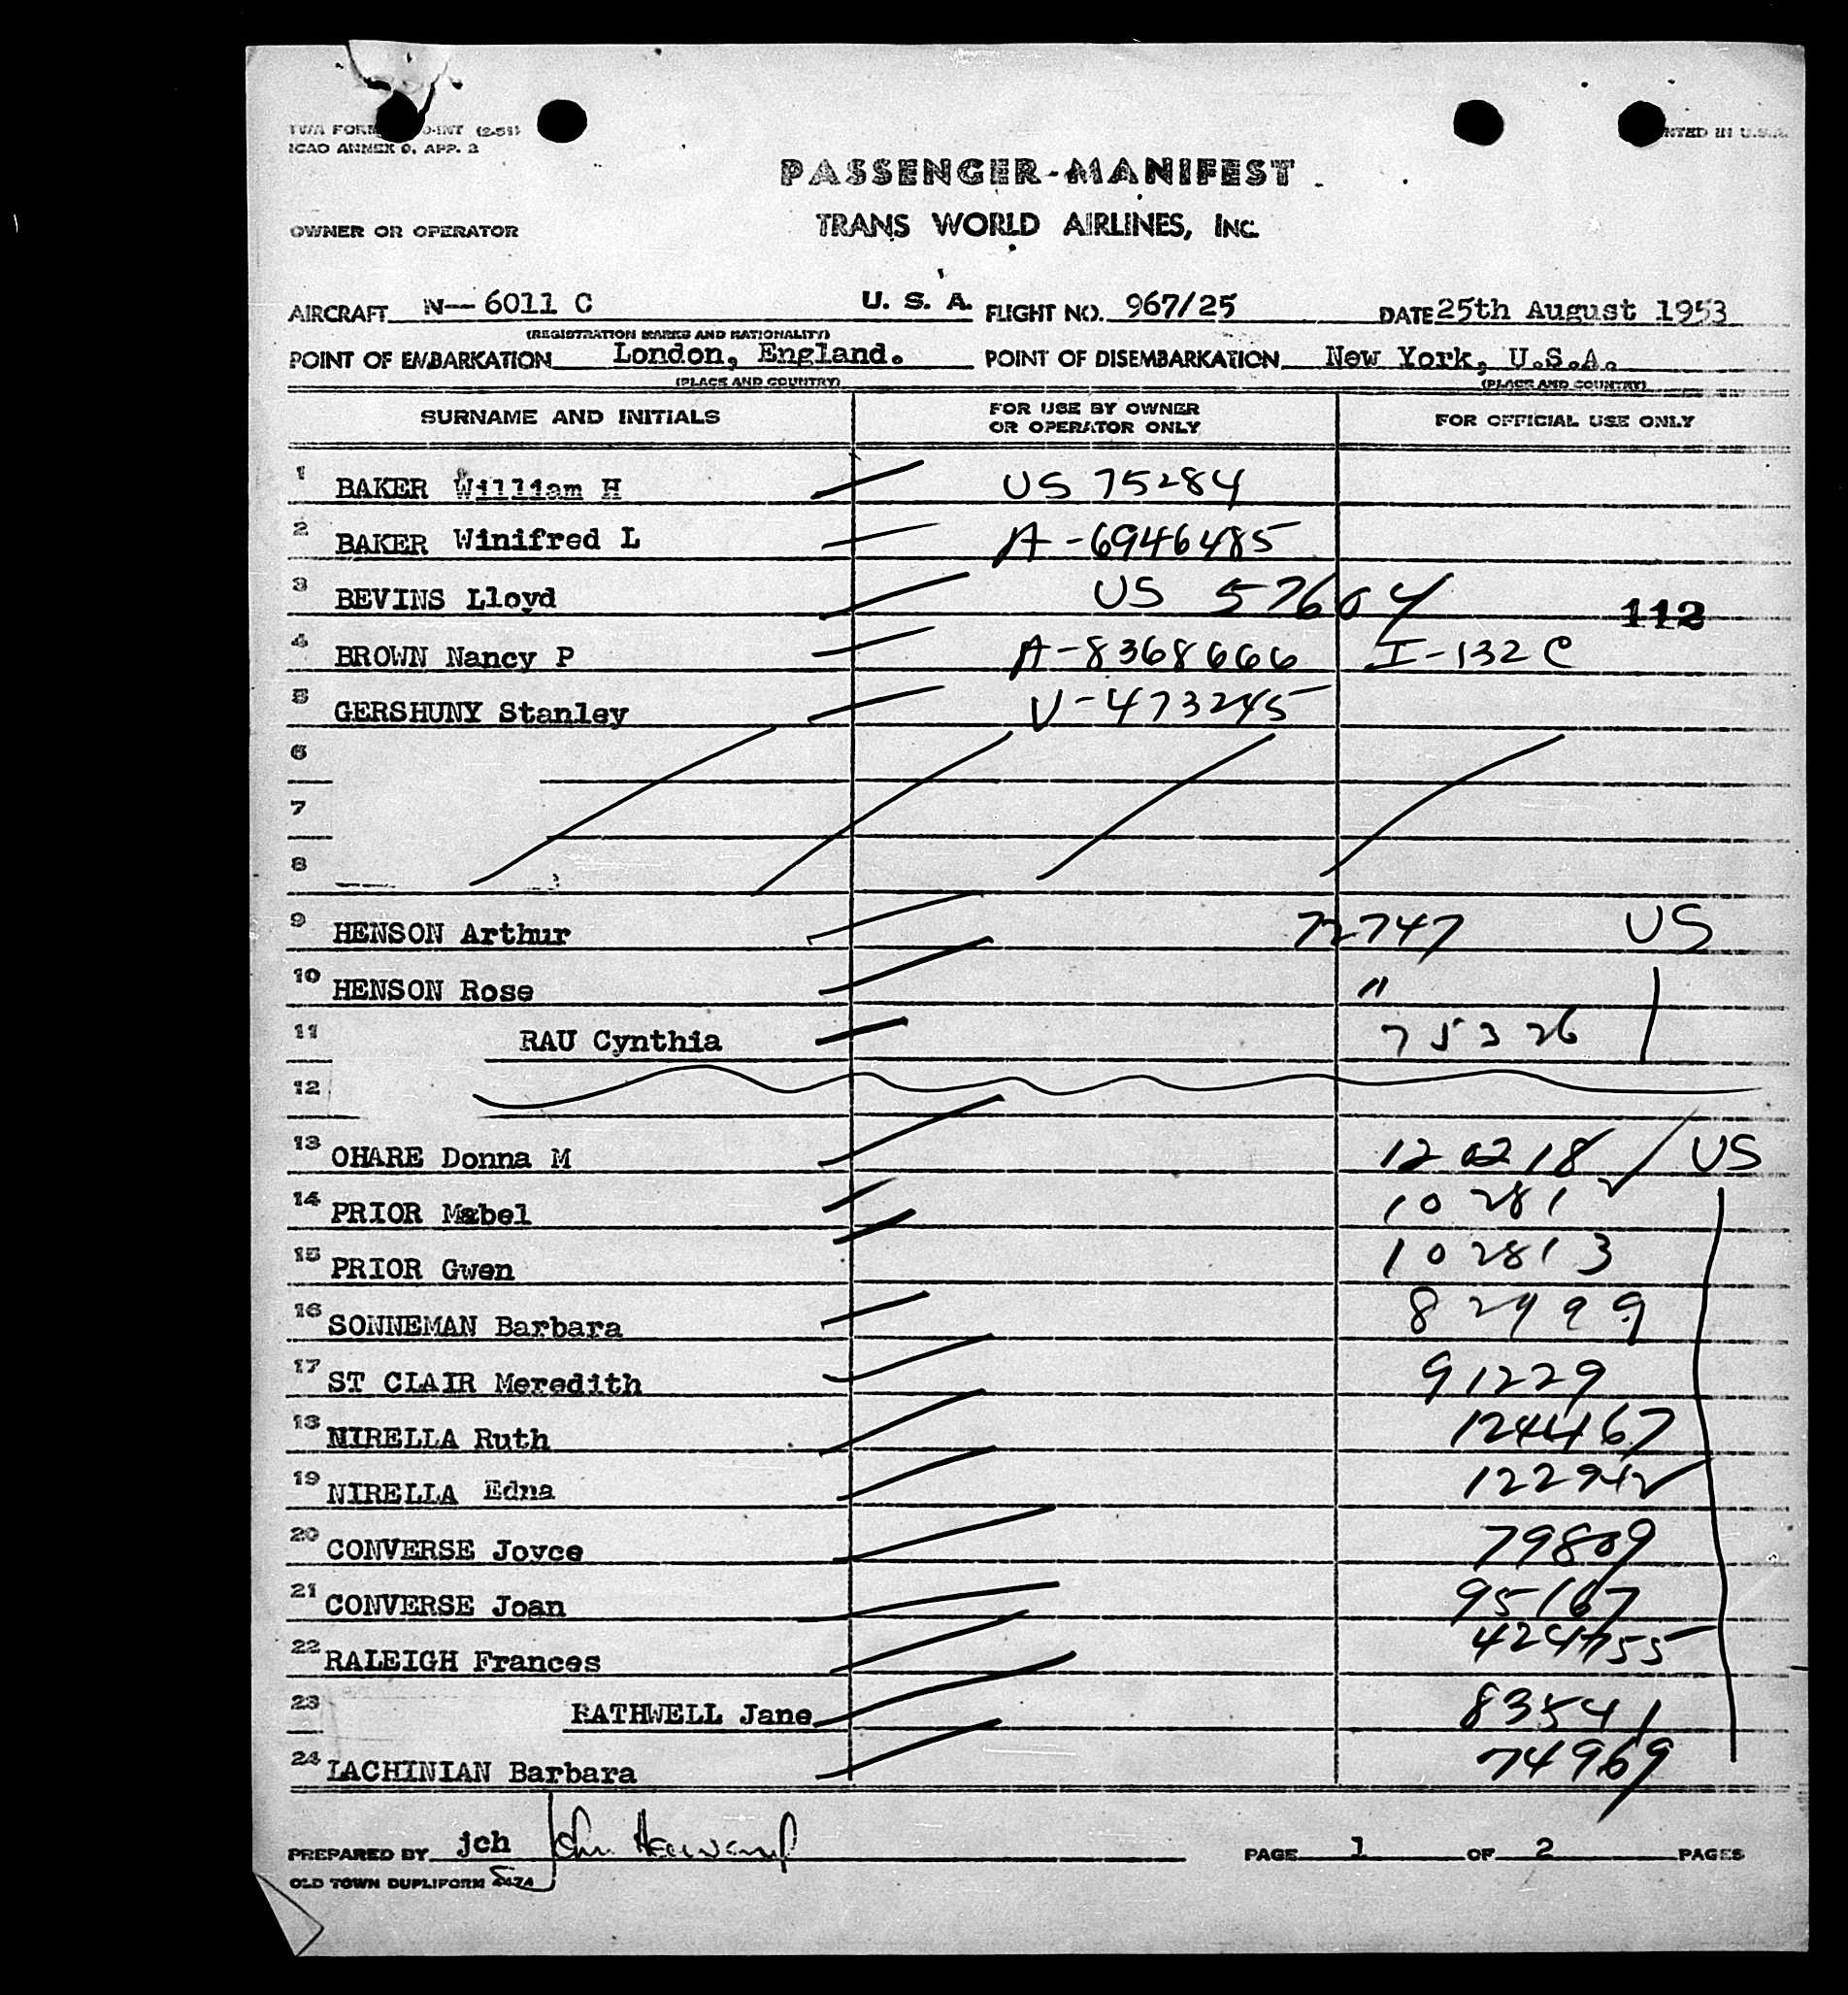 ICAO ANNEX 9, APP. 2
PASSENGER-MANIFEST
OWNER OR OPERATOR TRANS WORLD AIRLINES, INC.
AIRCRAFT N-- 6011 C U. S. A. FLIGHT NO. 967/25 DATE 25th August 1953
(REGISTRATION MARKS AND NATIONALITY)
POINT OF EMBARKATION London, England. POINT OF DISEMBARKATION New York, U.S.A.
(PLACE AND COUNTRY) (PLACE AND COUNTRY)
SURNAME AND INITIALS FOR USE BY OWNER OR OPERATOR ONLY FOR OFFICIAL USE ONLY
1 BAKER William H US 75284
2 BAKER Winifred L A-6946485
3 BEVINS Lloyd US 57604 112
4 BROWN Nancy P A-8368666 I-132 C
5 GERSHUNY Stanley V-473245
6
7
8
9 HENSON Arthur 72747 US
10 HENSON Rose "
11 RAU Cynthia 75326
12
13 OHARE Donna M 120218 US
14 PRIOR Mabel 102812
15 PRIOR Gwen 102813
16 SONNEMAN Barbara 82999
17 ST CLAIR Meredith 91229
18 NIRELLA Ruth 124467
19 NIRELLA Edna 122942
20 CONVERSE Joyce 79809
21 CONVERSE Joan 95167
22 RALEIGH Frances 424755
23 RATHWELL Jane 83541
24 LACHINIAN Barbara 74969
PREPARED BY jch John PAGE 1 OF 2 PAGES
OLD TOWN DUPLIFORM